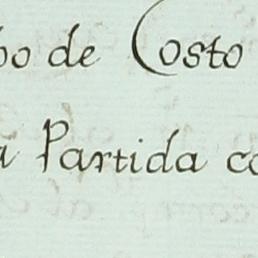 bo de Costo
a Partida co